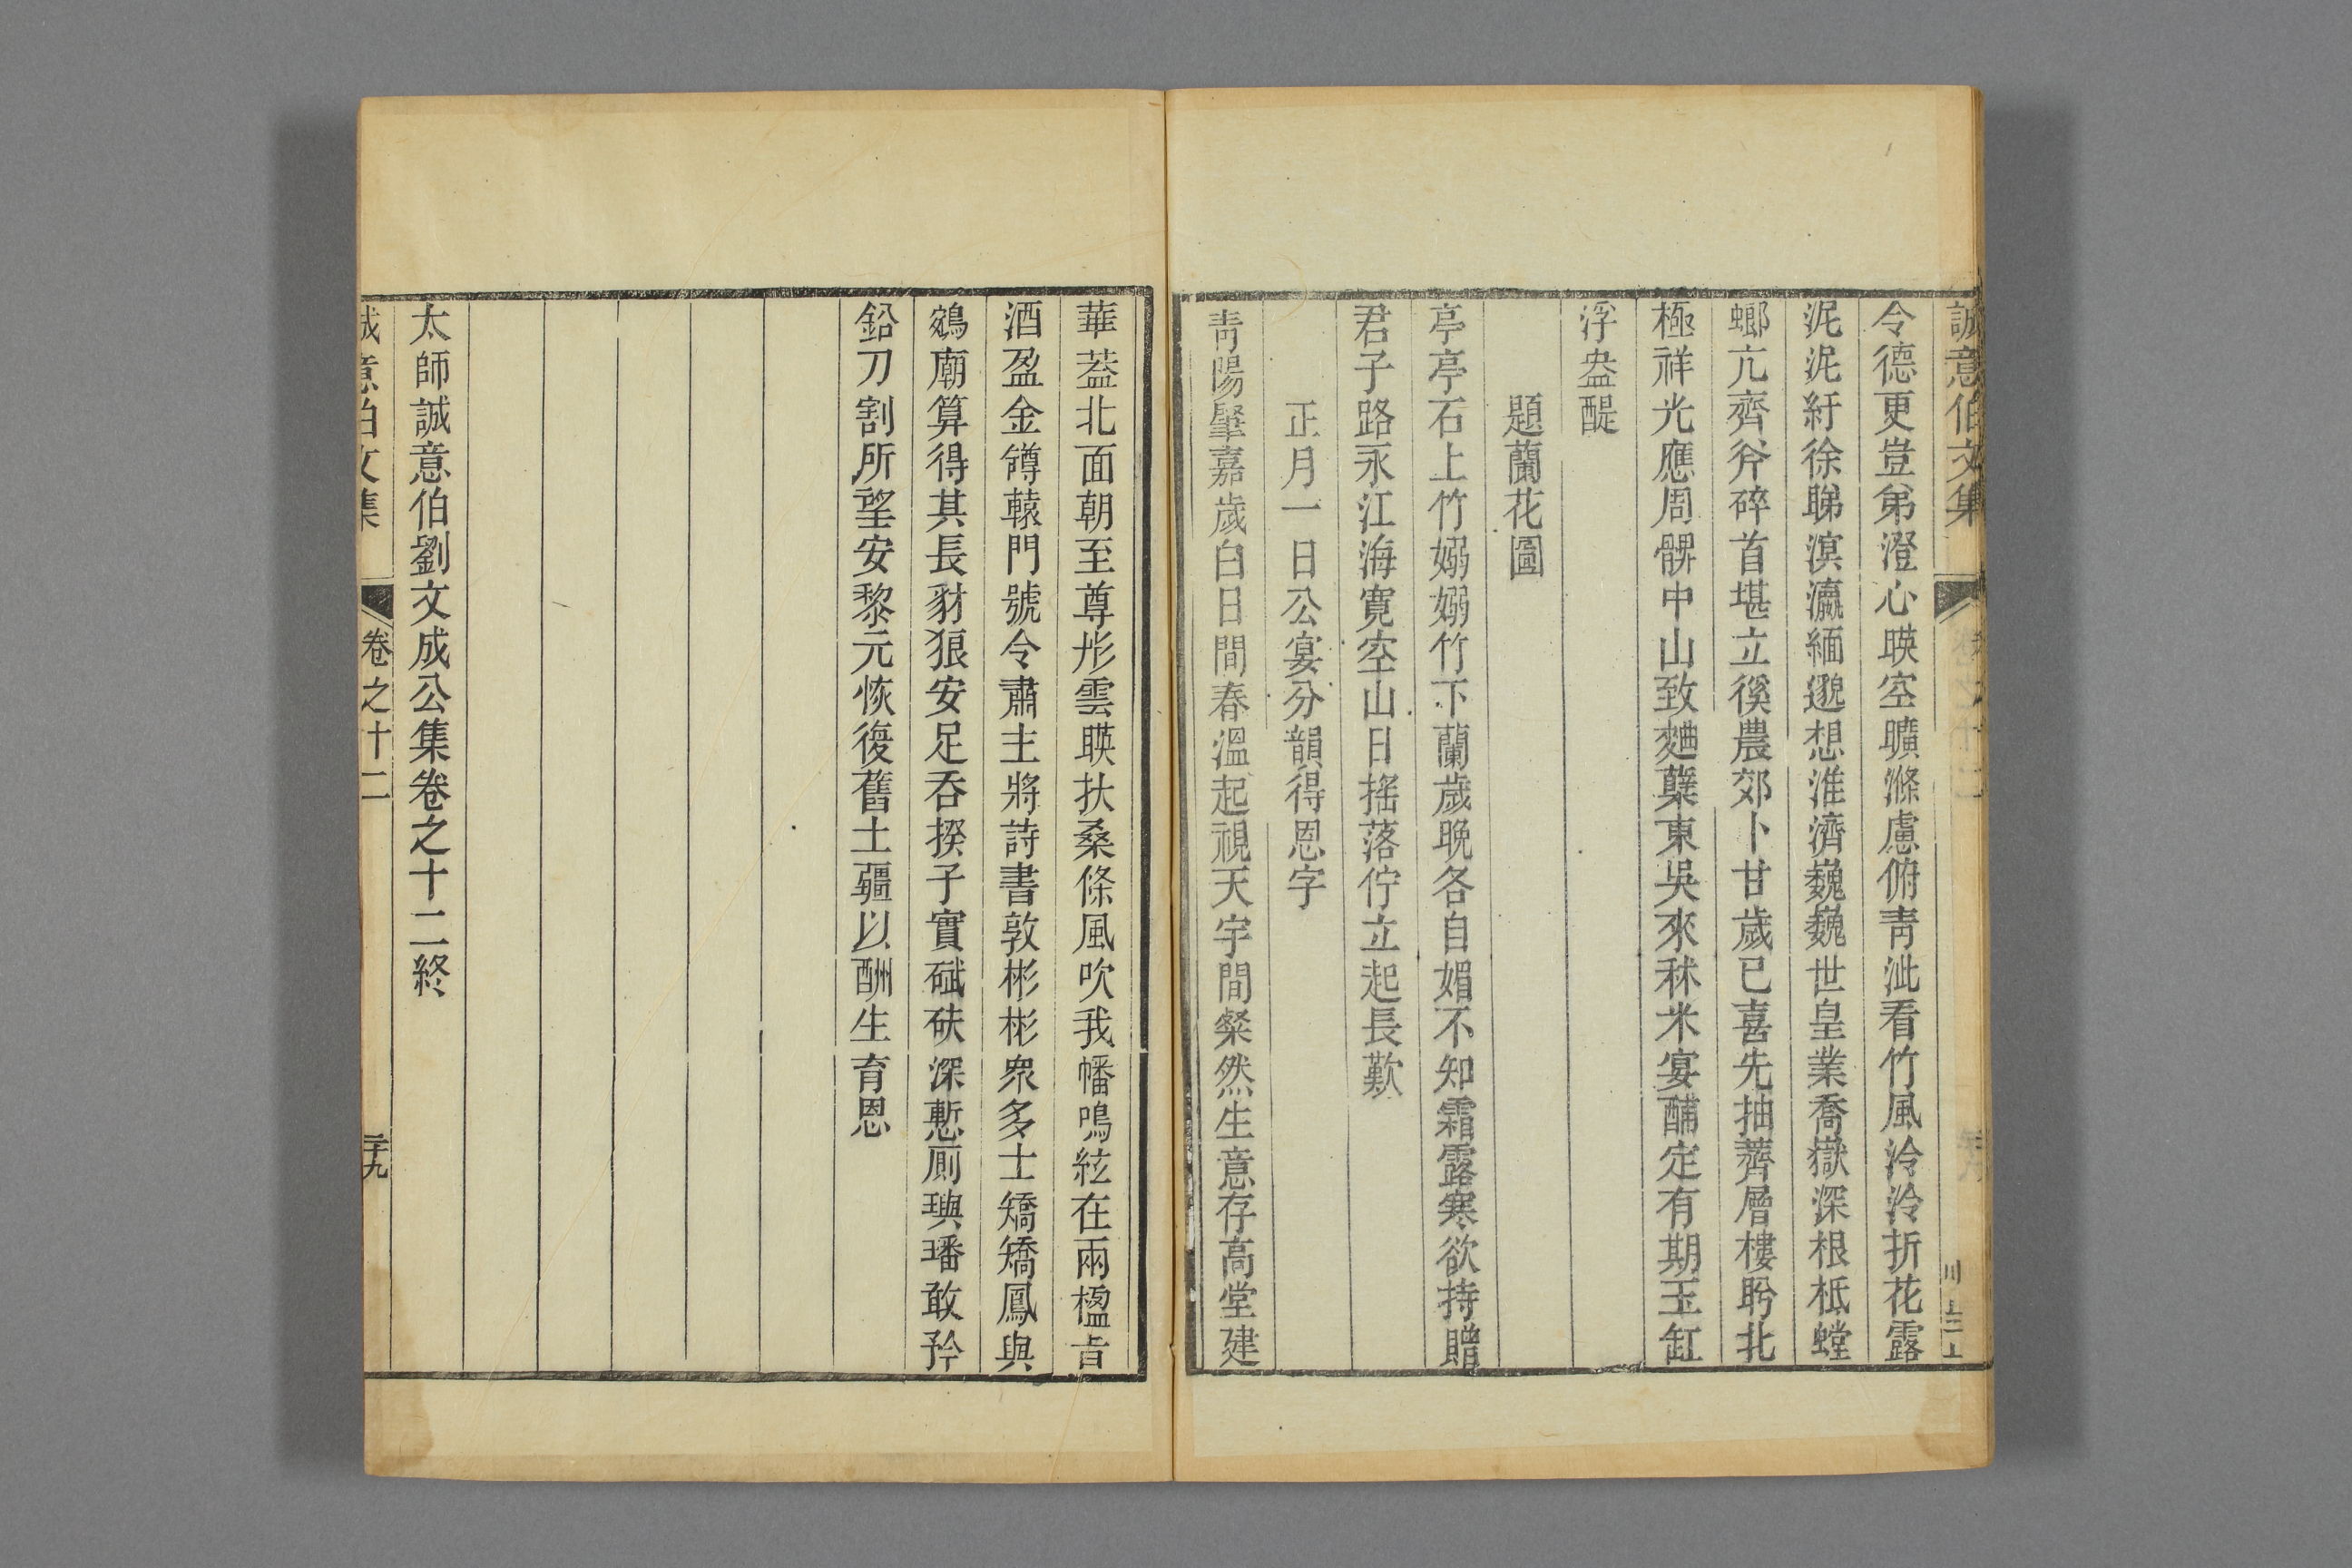 誠意伯文集
令德更豈弟澄心暎空曠滌慮俯靑泚看竹風泠泠折花露
泥泥紆徐睇溟瀛緬邈想淮濟巍巍世皇業喬嶽深根柢螳
螂亢齊斧碎首堪立徯農郊卜甘歲已喜先抽薺層樓盻北
極祥光應周髀中山致麯糵東吳來秫米宴酺定有期玉缸
浮盎醍
題蘭花圖
亭亭石上竹嫋嫋竹下蘭歲晚各自媚不知霜露寒欲持贈
君子路永江海寬空山日搖落佇立起長歎
正月一日公宴分韻得恩字
靑陽肇嘉歲白日間春溫起視天宇間粲然生意存高堂建
華葢北面朝至尊彤雲暎扶桑條風吹我幡鳴絃在兩楹旨
酒盈金罇轅門號令肅主將詩書敦彬彬衆多士矯矯鳳與
鵷廟算得其長豺狼安足吞揆子實碔砆深慙厠璵璠敢矜
鉛刀割所望安黎元恢復舊土疆以酬生育恩
太師誠意伯劉文成公集卷之十二終
誠意伯文集
卷之十二
二十九